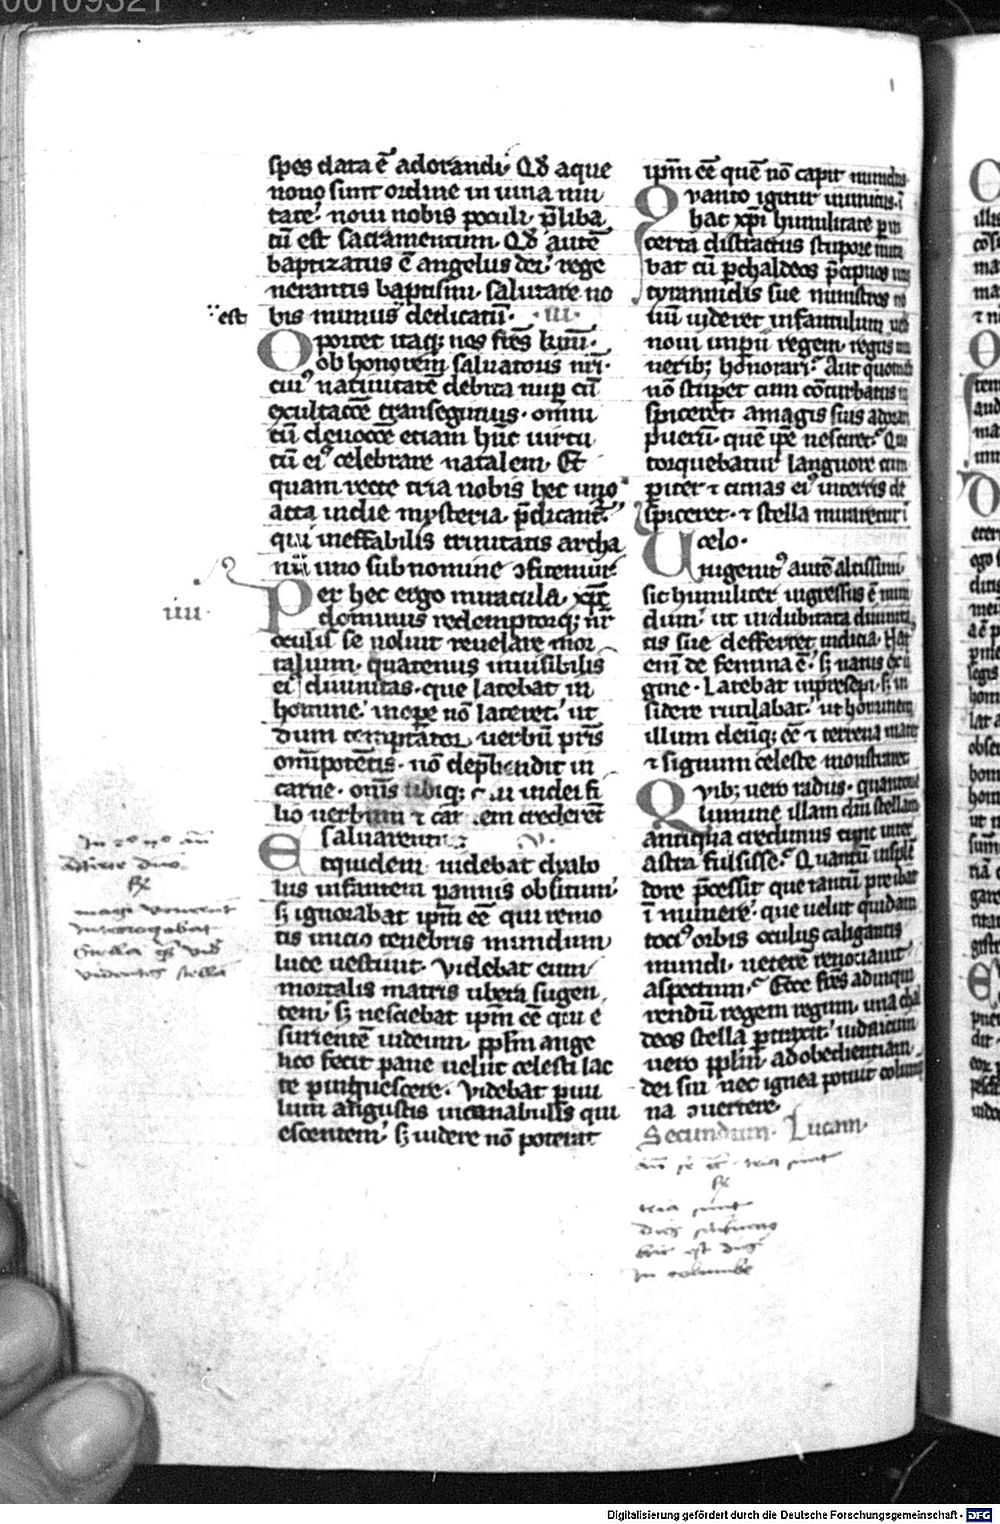 00109321
spes data ē adorandi· Qđ aque
nouo sunt ordine in uina mu
tate· noui nobis poculi p̄liba
tū est sacramentum· Qđ autē
baptizatus ē angelus dei· rege
nerantis baptismi salutare no
est
bis munus dedicatū· ·iii·
Oportet itaq; nos fr̄es kmi·
ob honorem saluatoris nr̄i·
cui⁹ natiuitatē debita nup cū
exultacōe transegimus· omni
cū deuocōe etiam hūc uirtu
tū ei⁹ celebrare natalem· Et
quam recte tria nobis hec uno
acta in die mysteria p̄dicant·
qui ineffabilis trinitatis archa
nū uno sub nomine ɔfitemur·
iiii·
Per hec ergo miracula xp̄c
dominus redemptorq; nr̄
oculis se uoluit reuelare mor
talium· quatenus inuisibilis
ei⁹ diuinitas· que latebat in
homine· in ope nō lateret· ut
dum temptator uerbū pr̄is
omīpotētis· nō dephendit in
carne· om̄s ubiq; in dei fi
lio uerbum ⁊ carnem crederēt
saluarentur· v·
Et quidem uidebat dyabo
lus infantem pannis obsitum·
s; ignorabat ip̄m ēē qui remo
tis inicio tenebris mundum
luce uestiuit· Videbat eum
mortalis matris ubera sugen
tem· s; nesciebat ip̄m ēē qui e
surientē iudeum pp̄lm ange
lico fecit pane uelut celesti lac
te pinguescere· Videbat puu
lum angustis incunabulis qui
escentem· s; uidere nō poterat
magi venerunt
videntes stella
ip̄m ēē quē nō capit mundus·
Quanto igitur inimicus· ī
hac xp̄i humilitate p in
certa distractus stupore muta
bat cū p chaldeos p̄cipuos
tyrannidis sue ministros
uideret infantulum
noui impii regem regus
neribus; honorari· Aut quomodo
nō stupet cum cōturbatus
spiceret· a magis suis adorari
puerū· quē ip̄e nesciret· Quo
torquebatur languore cum
piter ⁊ cunas ei⁹ in terris de
spiceret· ⁊ stella miraretur ī
celo·
Unigenit⁹ autē altissimi
sic humiliter ingressus ē mun
dum· ut indubitata diuinita
tis sue defferret indicia· Nat⁹
eni de femina ē· s; natus ex ui
gine· Latebat in presepi· s; in
sidere rutilabat· ut hominem
illum deūq; ēē ⁊ terrena mater
⁊ signum celeste monstraret
Quib; uero radus· quantoue
lumine illam diui stellam
antiqua credimus cunc inter
astra fulsisse· Quantū insplē
dore p̄cessit que tantū preibat
ī munere· que uelut quidam
toci⁹ orbis oculus caligantis
mundi· ueterē renouauit
aspectum· Ecce fr̄es ad inqui
rendū regem regum· una chal
deos stella p traxit· iudaicum
uero pp̄lm ad obedientiam
dei sui nec ignea potuit colum
na ɔuertere·
Secundum· Lucam·
tria sunt
tria sunt
in columbe
Digitalisierung gefördert durch die Deutsche Forschungsgemeinschaft - DFG